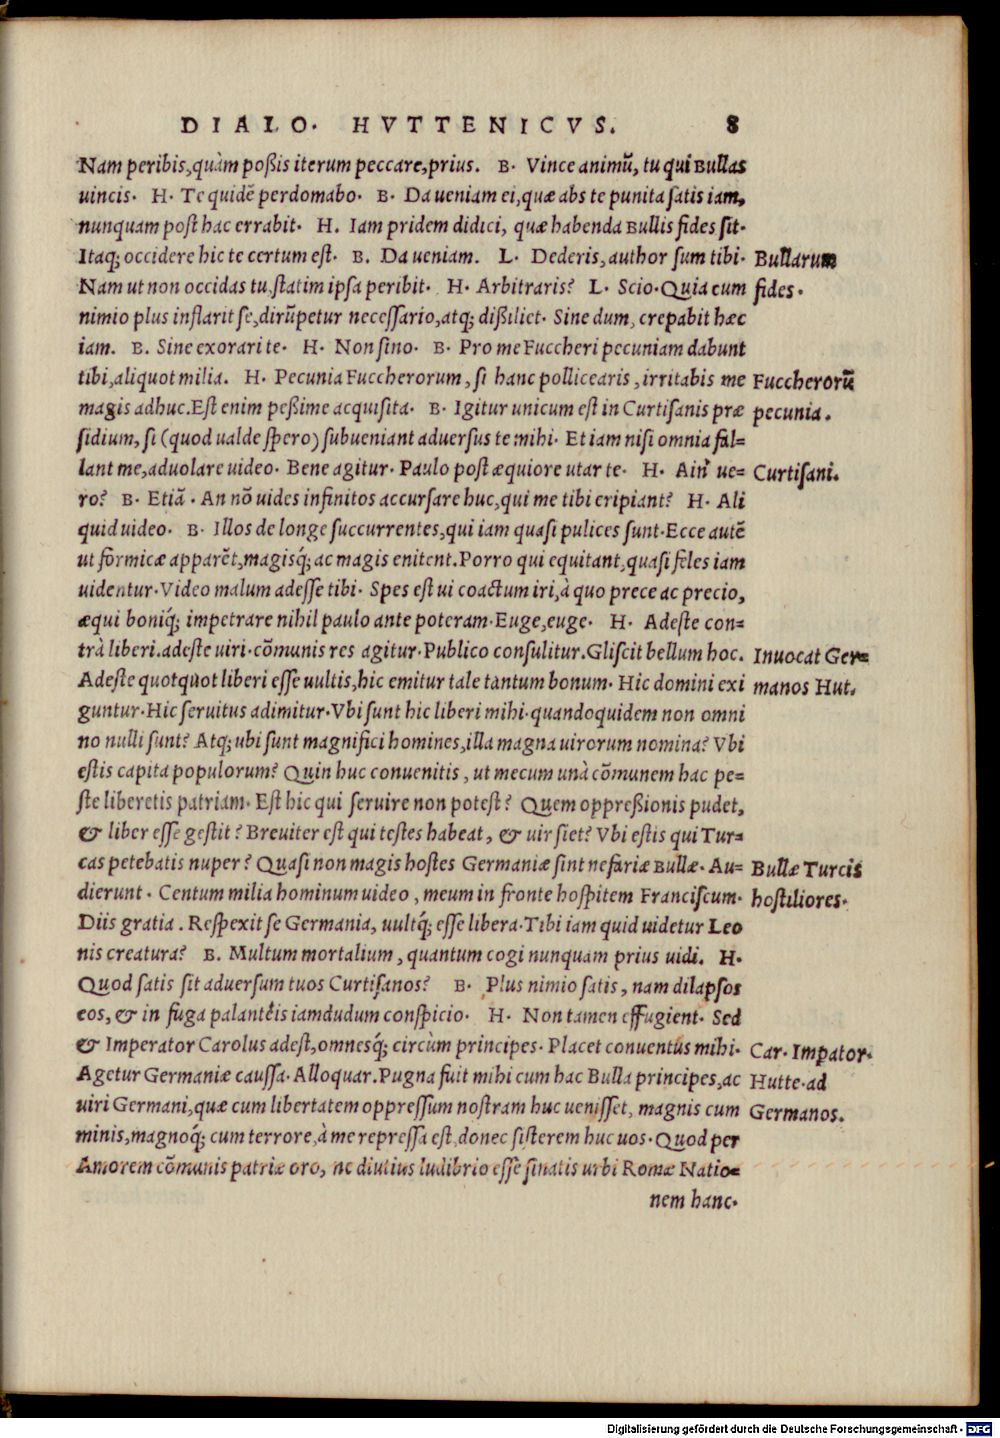 DIALO. HVTTENICVS. 8
Nam peribis,quàm poßis iterum peccare,prius. B. Vince animū, tu qui Bullas
uincis. H. Te quidē perdomabo. B. Da ueniam ei,quæ abs te punita satis iam,
nunquam post hac errabit. H. Iam pridem didici, quæ habenda Bullis fides sit.
Itaq; occidere hic te certum est. B. Da ueniam. L. Dederis, author sum tibi. Bullarum
Nam ut non occidas tu, statim ipsa peribit. H. Arbitraris? L. Scio. Quia cum fides.
nimio plus inflarit se,dirūpetur necessario,atq; dißiliet. Sine dum, crepabit hæc
iam. B. Sine exorari te. H. Non sino. B. Pro me Fuccheri pecuniam dabunt
tibi,aliquot milia. H. Pecunia Fuccherorum, si hanc pollicearis, irritabis me Fuccherorū
magis adhuc.Est enim peßime acquisita. B. Igitur unicum est in Curtisanis præ pecunia.
sidium, si (quod ualde spero) subueniant aduersus te mihi. Et iam nisi omnia fal=
lant me,aduolare uideo. Bene agitur. Paulo post æquiore utar te. H. Ain' ue= Curtisani.
ro? B. Etiā. An nō uides infinitos accursare huc,qui me tibi eripiant? H. Ali
quid uideo. B. Illos de longe succurrentes,qui iam quasi pulices sunt.Ecce autē
ut formicæ apparēt,magisq́; ac magis enitent.Porro qui equitant,quasi feles iam
uidentur.Video malum adesse tibi. Spes est ui coactum iri,à quo prece ac precio,
æqui boniq́; impetrare nihil paulo ante poteram.Euge,euge. H. Adeste con=
trà liberi.adeste uiri.cōmunis res agitur.Publico consulitur.Gliscit bellum hoc. Inuocat Ger=
Adeste quotquot liberi esse uultis,hic emitur tale tantum bonum. Hic domini exi manos Hut.
guntur.Hic seruitus adimitur.Vbi sunt hic liberi mihi.quandoquidem non omni
no nulli sunt? Atq; ubi sunt magnifici homines,illa magna uirorum nomina? Vbi
estis capita populorum? Quin huc conuenitis, ut mecum unà cōmunem hac pe=
ste liberetis patriam. Est hic qui seruire non potest? Quem oppreßionis pudet,
& liber esse gestit? Breuiter est qui testes habeat, & uir siet? Vbi estis qui Tur=
cas petebatis nuper? Quasi non magis hostes Germaniæ sint nefariæ Bullæ. Au= Bullæ Turcis
dierunt. Centum milia hominum uideo, meum in fronte hospitem Franciscum. hostiliores.
Diis gratia. Respexit se Germania, uultq́; esse libera.Tibi iam quid uidetur Leo
nis creatura? B. Multum mortalium, quantum cogi nunquam prius uidi. H.
Quod satis sit aduersum tuos Curtisanos? B. Plus nimio satis, nam dilapsos
eos, & in fuga palanteis iamdudum conspicio. H. Non tamen effugient. Sed
& Imperator Carolus adest,omnesq́; circùm principes. Placet conuentus mihi. Car. Impator.
Agetur Germaniæ caussa. Alloquar.Pugna fuit mihi cum hac Bulla principes,ac Hutte. ad
uiri Germani,quæ cum libertatem oppressum nostram huc uenisset, magnis cum Germanos.
minis,magnoq́; cum terrore,à me repressa est,donec sisterem huc uos.Quod per
Amorem cōmunis patriæ oro, ne diutius ludibrio esse sinatis urbi Romæ Natio=
nem hanc.
Digitalisierung gefördert durch die Deutsche Forschungsgemeinschaft - DFG